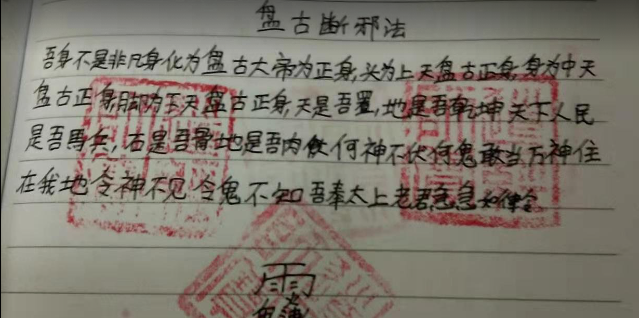 盘古断邪法
吾身不是非凡身化为盘古大帝为正身,头为上天盘古正身,身为中天
盘古正身,脚为下天盘古正身,天是吾盖,地是吾乾坤天下人民
是吾马兵,石是吾骨地是吾肉 何神不伏何鬼敢当万神住
在我地令神不见令鬼不知吾奉太上老君急急如律令
雨